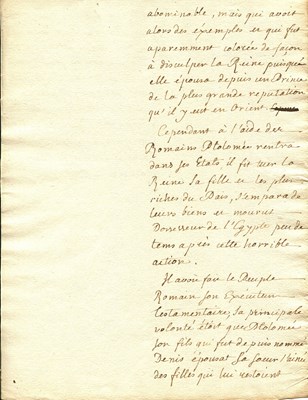 abominable, mais qui avoit
alors des éxemples et qui fut
aparemment colorée de façon
à disculper la Reine puisque
elle épousa depuis un Prince
de la plus grande reputation
qu'il y eut en Orient
Cependant à l'aide des
Romains Ptolomée rentra
dans ses Etats il fit tuer la
Reine sa fille et les plus
riches du Païs, s'empara de
leurs biens et mourut
Possesseur de l'Egypte peu de
tems après cette horrible
action.
Il avoit fait le Peuple
Romain son Exécuteur
testamentaire, sa principale
volonté étoit que Ptolomée
son fils qui fut depuis nommé
Denis épousat sa soeur l'ainée
des filles qui lui restoient